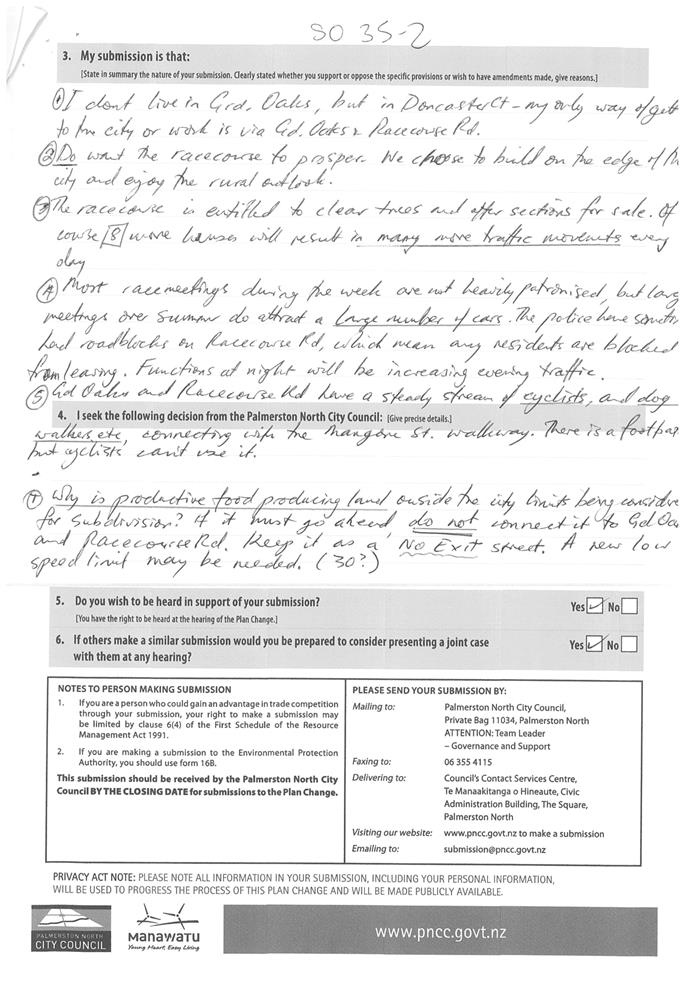 SO 35-2
3. My submission is that:
[State in summary the nature of your submission. Clearly stated whether you support or oppose the specific provisions or wish to have amendments made, give reasons.]
① I dont live in Grd. Oaks, but in Doncaster Ct - my only way of gett
to the city or work is via Gd. Oaks & Racecourse Rd.
② Do want the racecourse to prosper. We choose to build on the edge of th
city and enjoy the rural outlook.
③ The racecourse is entitled to clear trees and offer sections for sale. Of
course 8 more houses will result in many more traffic movements every
day
④ Most racemeetings during the week are not heavily patronised, but larg
meetings over summer do attract a large number of cars. The police have
had roadblocks on Racecourse Rd, which mean any residents are blocked
from leaving. Functions at night will be increasing evening traffic.
⑤ Gd Oaks and Racecourse Rd have a steady stream of cyclists, and dog
4. I seek the following decision from the Palmerston North City Council: [Give precise details.]
walkers etc, connecting with the Mangone St. walkway. There is a footpa
but cyclists can't use it.
Why is productive food producing land outside the city limits being conside
for subdivision? If it must go ahead, do not connect it to Gd Oa
and Racecourse Rd. Keep it as a No Exit street. A new low
speed limit may be needed. (30?)
5. Do you wish to be heard in support of your submission? Yes No
[You have the right to be heard at the hearing of the Plan Change.]
6. If others make a similar submission would you be prepared to consider presenting a joint case Yes No
with them at any hearing?
NOTES TO PERSON MAKING SUBMISSION
1. If you are a person who could gain an advantage in trade competition
through your submission, your right to make a submission may
be limited by clause 6(4) of the First Schedule of the Resource
Management Act 1991.
2. If you are making a submission to the Environmental Protection
Authority, you should use form 16B.
This submission should be received by the Palmerston North City
Council BY THE CLOSING DATE for submissions to the Plan Change.
PLEASE SEND YOUR SUBMISSION BY:
Mailing to: Palmerston North City Council,
Private Bag 11034, Palmerston North
ATTENTION: Team Leader
– Governance and Support
Faxing to: 06 355 4115
Delivering to: Council's Contact Services Centre,
Te Manaakitanga o Hineaute, Civic
Administration Building, The Square,
Palmerston North
Visiting our website: www.pncc.govt.nz to make a submission
Emailing to: submission@pncc.govt.nz
PRIVACY ACT NOTE: PLEASE NOTE ALL INFORMATION IN YOUR SUBMISSION, INCLUDING YOUR PERSONAL INFORMATION,
WILL BE USED TO PROGRESS THE PROCESS OF THIS PLAN CHANGE AND WILL BE MADE PUBLICLY AVAILABLE.
PALMERSTON NORTH
CITY COUNCIL
MANAWATU
Young Heart, Easy Living
www.pncc.govt.nz